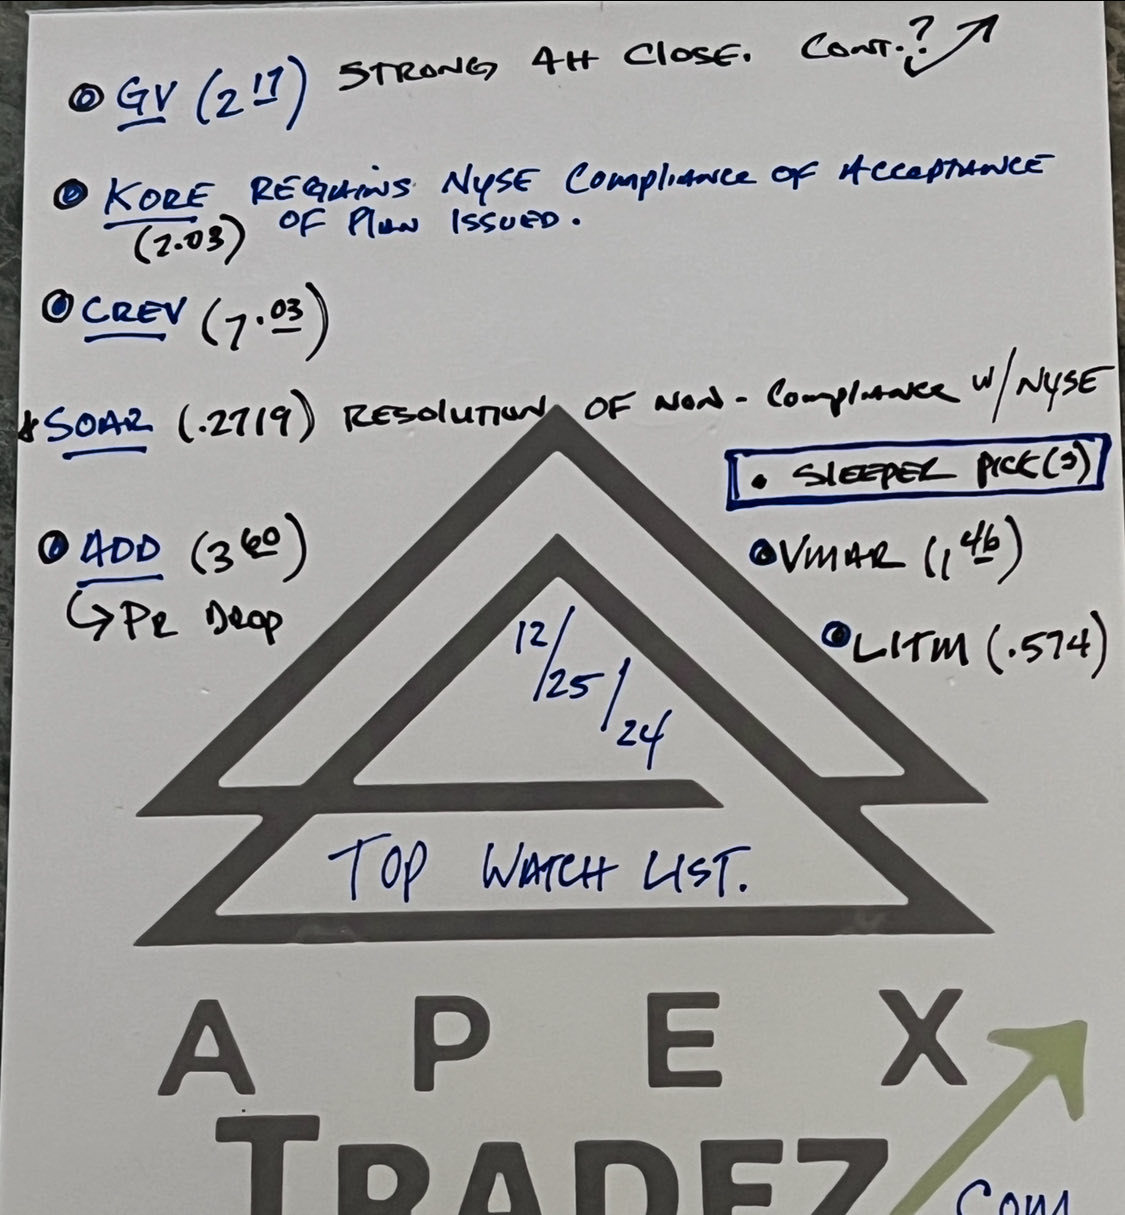 GV (2 17) STRONG AH CLOSE. CONT.?
KORE REGAINS NYSE Compliance OF Acceptance
(2.03) OF Plan ISSUED.
CREV (7.03)
SOAR (.2719) RESOLUTION OF NON-Compliance W/NYSE
• SLEEPER PICK(S)
ADD (3 60)
VMAR (1 46)
PR Drop
LITM (.574)
12/25/24
TOP WATCH LIST.
APEX
TRADEZ
.COM